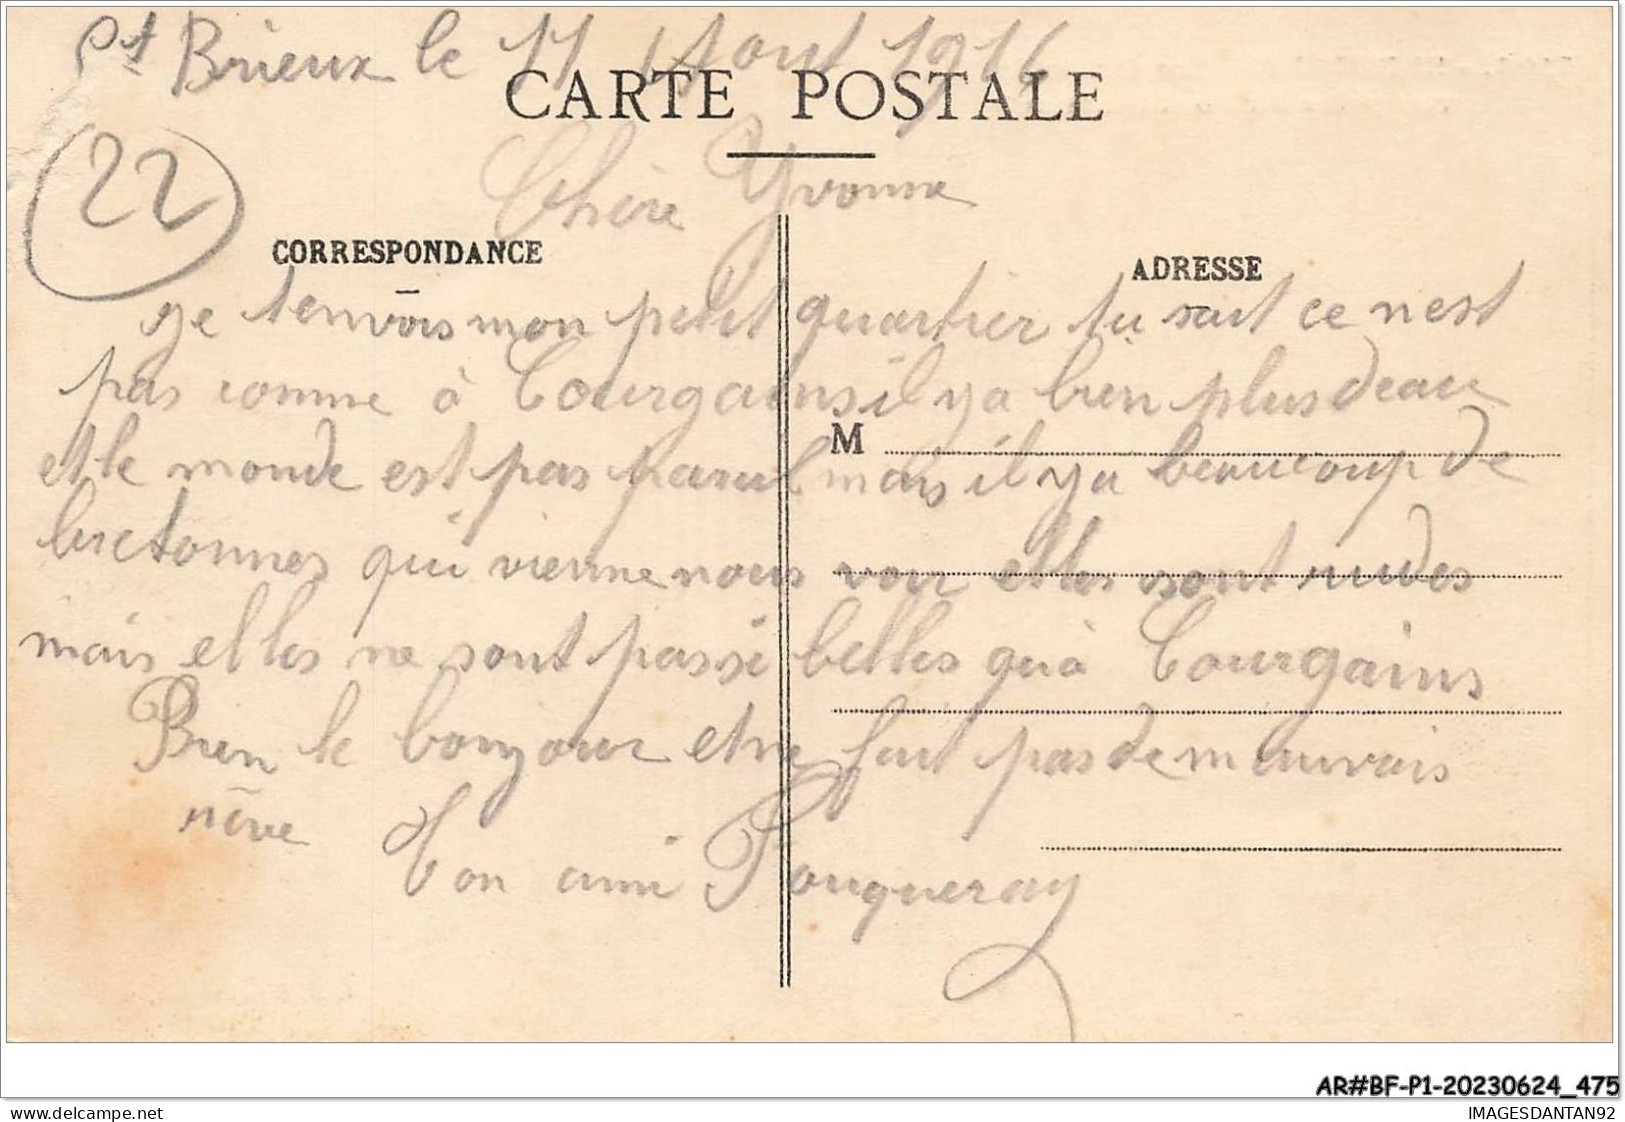 St Brieux le 11 Aout 1916
CARTE POSTALE
22
Chère Yvonne
CORRESPONDANCE
ADRESSE
je tenvois mon petit quartier tu sait ce nest
pas comme à Courgains il ya bien plus deau
M
et le monde est pas pareul mais il ya beaucoup de
bretonnes qui vienne nous voir elles sont rudes
mais elles ne sont pas si belles quà Courgains
Bien le bonjour et ne fait pas de mauvais
rêve
Ton ami Fouqueray
AR#BF-P1-20230624_475
www.delcampe.net
IMAGESDANTAN92